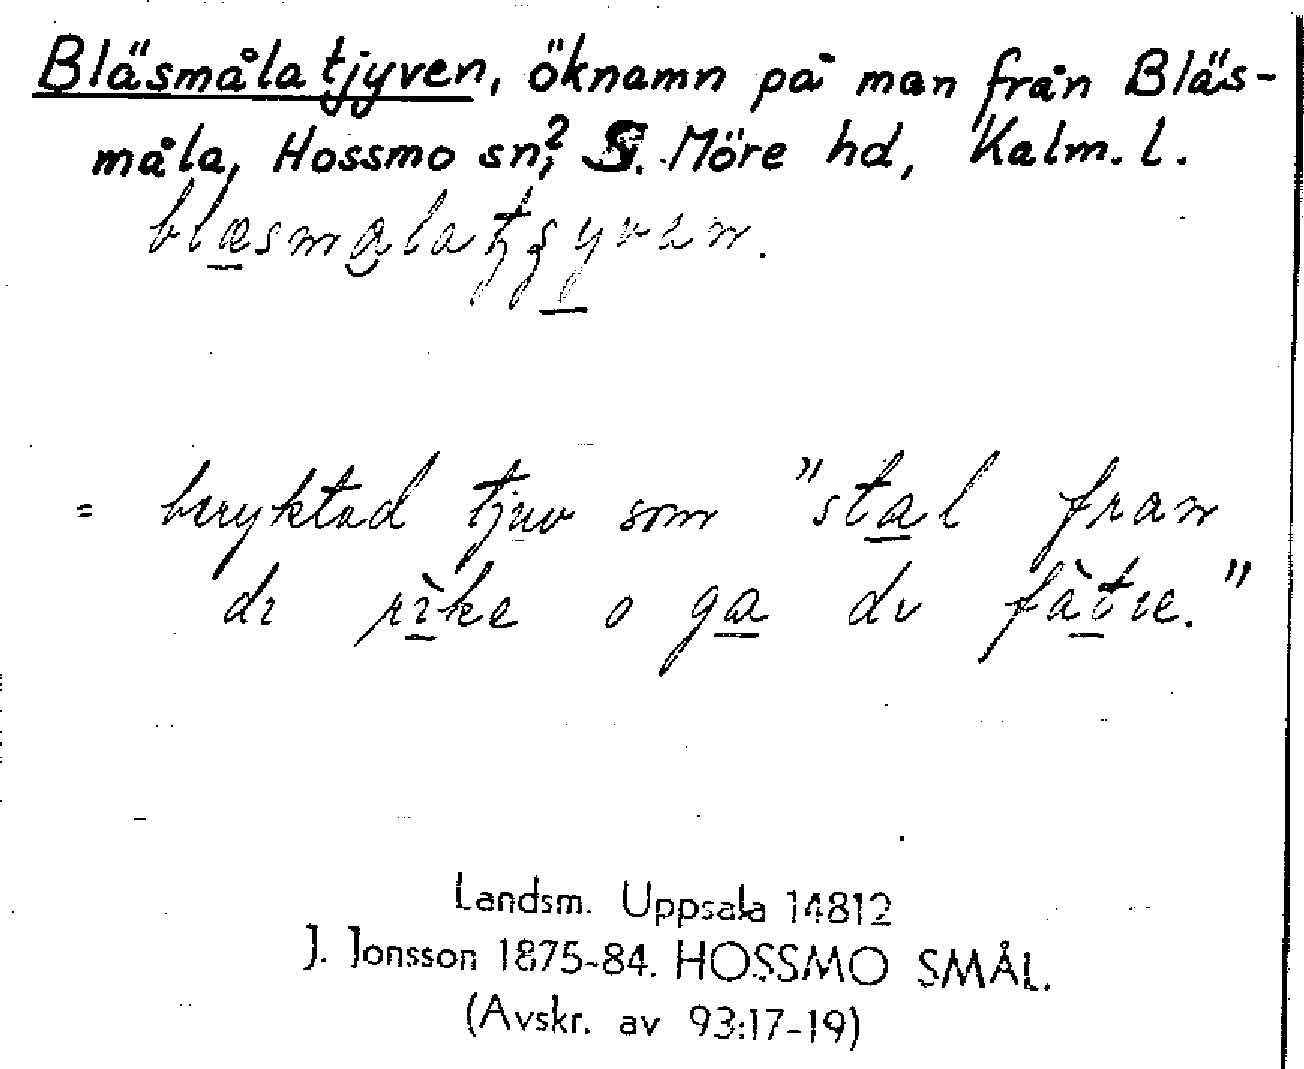 Bläsmåla tjyven, öknamn på man från Bläs-
måla, Hossmo sn,? S. Möre hd, Kalm. l.
= beryktad tjuv som "stal fran
di rìke o ga di fàtie."
Landsm. Uppsala 14812
J. Jonsson 1875-84. HOSSMO SMÅL.
(Avskr. av 93:17-19)